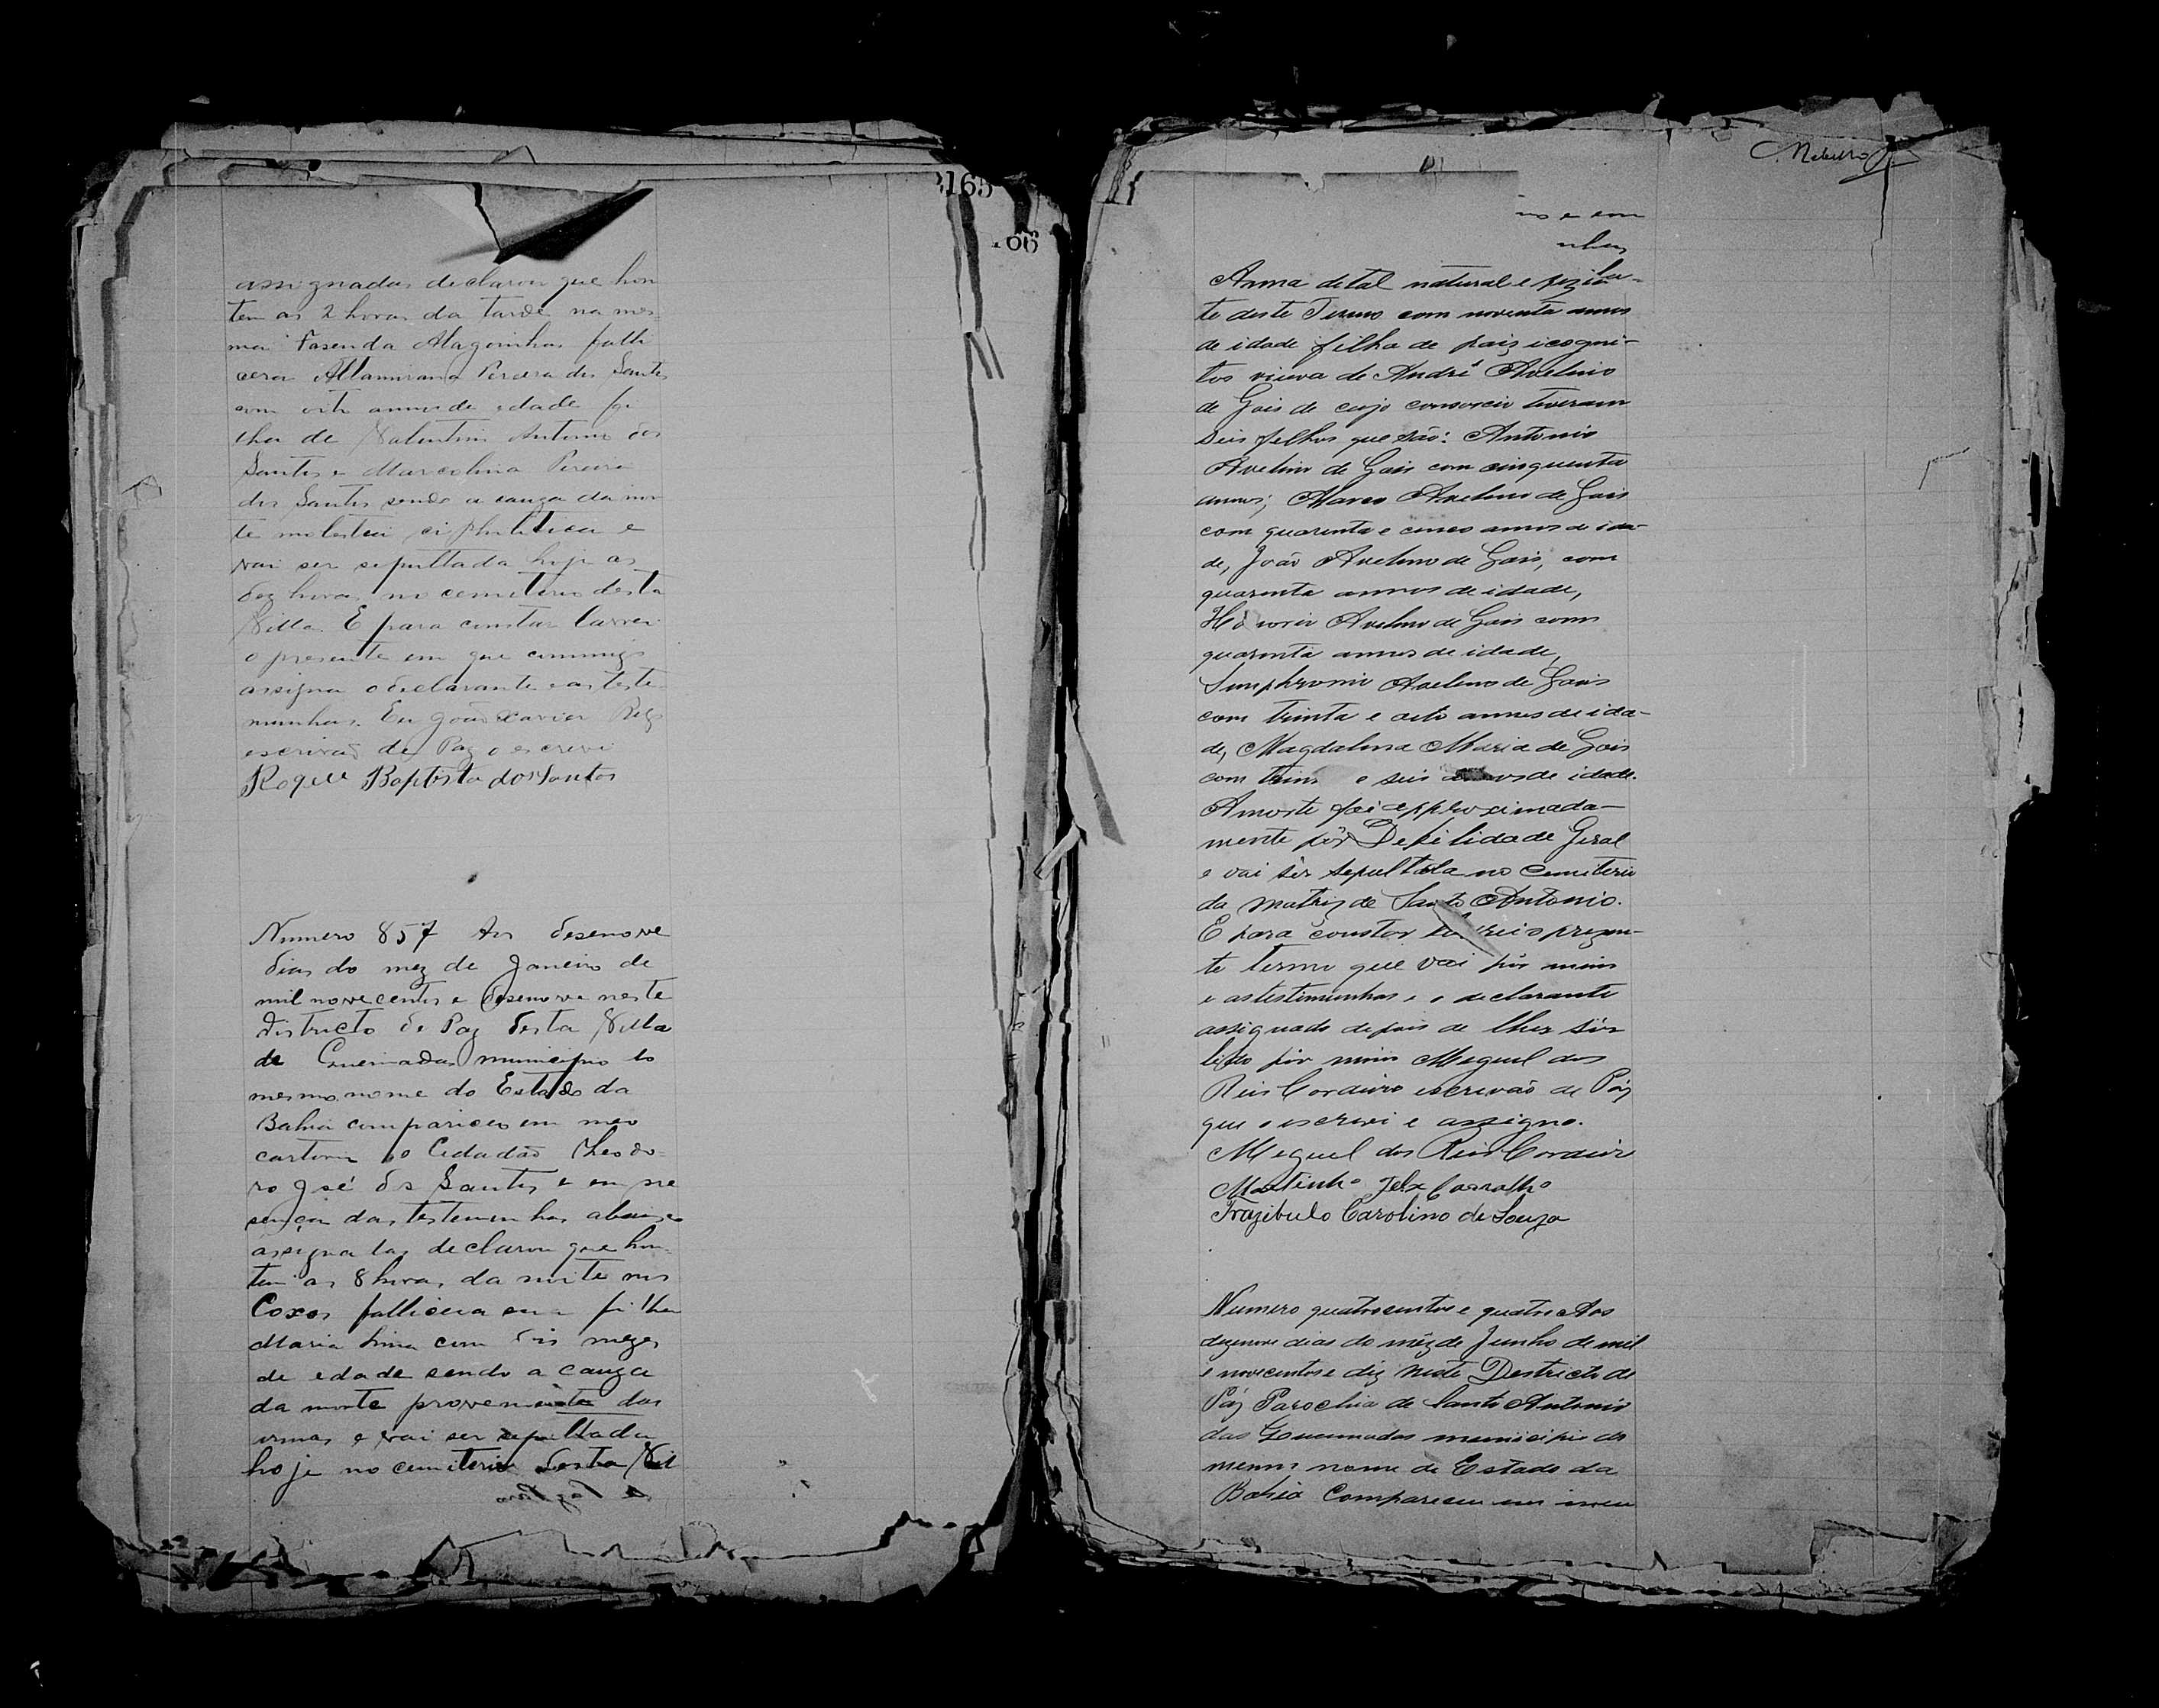 165
166
assignadas declarou que hon
tem as 2 horas da tarde na mes-
ma Fasenda Alagoinhas falle
cera Altamirana Pereira dos Santos
com oito annos de edade fi
lha de Valentim Antonio dos
Santos e Marcolina Pereira
dos Santos sendo a cauza da mor
te molestia siphilitica e
vai ser sepultada hoje as
dez horas no cemiterio desta
Villa. E para constar lavrei
o presente em que commigo
assigna o declarante e as teste
munhas. Eu João Xavier Reis
escrivão de Paz o escrevi
Roque Baptista dos Santos
Numero 857 Aos desenove
dias do mez de Janeiro de
mil novecentos e desenove neste
districto de Paz desta Villa
de Queimadas municipio do
mesmo nome do Estado da
Bahia compariceo em meo
cartorio o Cidadão Theodo-
ro José dos Santos e em pre
sença das testemunhas abaixo
assignadas declarou que hon-
tem as 8 horas da noite nos
Coxos fallicera sua filha
Maria com dois mezes
de edade sendo a cauza
da morte proveniente das
e vai ser sepultada
hoje no cemiterio desta Vil
no e em
nhas
Anna de tal natural e rezide-
te deste Termo com noventa annos
de idade filha de paiz icogni-
tos viuva de André Avelino
de Gois de cujo consorcio tiveram
seis filhos que são: Antonio
Avelino de Gois com cinquenta
annos; Marco Avelino de Gois
com quarenta e cinco annos de ida-
de, João Avelino de Gois, com
quarenta annos de idade,
Honorio Avelino de Gois com
quarenta annos de idade,
Simphronio Avelino de Gois
com trinta e oito annos de ida-
de, Magdalena Maria de Gois
com trin e seis annos de idade.
A morte foi approximada-
mente pôr Debilidade Geral
e vai sêr sepultada no Cemiterio
da matriz de Santo Antonio.
E para constar lavrei o prezen-
te termo que vai pôr mim
e as testimunhas e o declarante
assignado depois de lhes sêr
lido pôr mim Miguel dos
Reis Cordeiro escrivão de Páz
que o escrevi e assigno.
Miguel dos Reis Cordeiro
Martinho Felix Carvalho
Trazibulo Carolino de Souza
Numero quatrocentos e quatro Aos
dezenove dias do mêz de Junho de mil
e novecentos e diz neste Destricto de
Páz Parochia de Santo Antonio
das Queimadas municipio do
mesmo nome de Estado da
Bahia Compareceu em meu